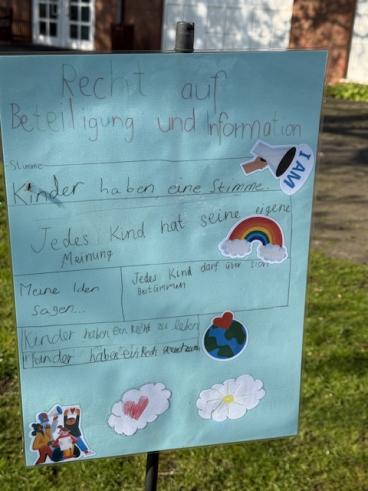 Recht auf
Beteiligung und Information
Stimme
Kinder haben eine Stimme.
I AM
Jedes Kind hat seine eigene
Meinung
Meine Iden
sagen...
Jedes Kind darf über sich
Bestimmen
Kinder haben ein Recht zu leben
Kinder haben ein Recht